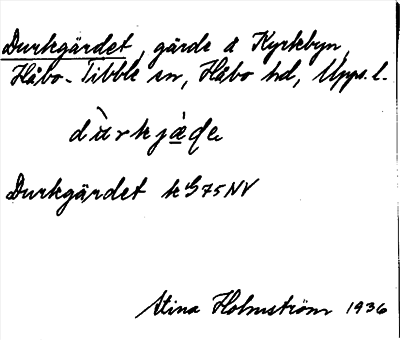 Durkgärdet, gärde å Kyrkbyn,
Håbo-Tibble sn, Håbo hd, Upps. l.
dùrkjá̤de
Durkgärdet k G 75 NV
Stina Holmström 1936